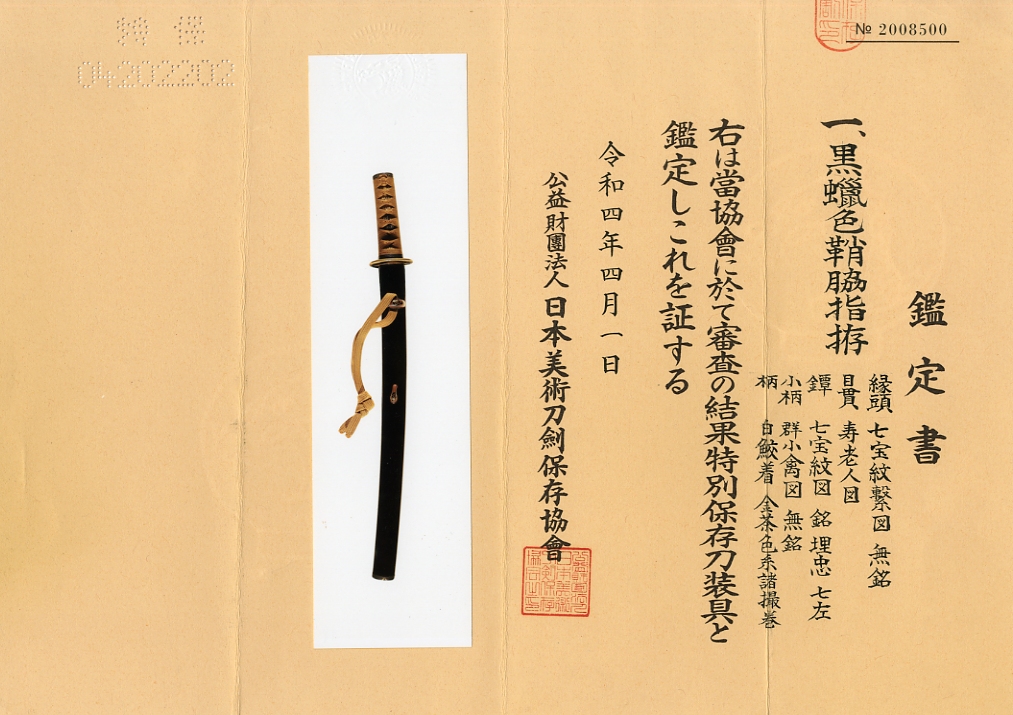 № 2008500
鑑定書
一、黒蠟色鞘脇指拵
縁頭 七宝紋繋図 無銘
目貫 寿老人図
鐔 七宝紋図 銘 埋忠七左
小柄 群小禽図 無銘
柄 白鮫着 金茶色糸諸撮巻
右は當協會に於て審査の結果特別保存刀装具と
鑑定しこれを証する
令和四年四月一日
公益財團法人 日本美術刀劍保存協會
特保
04202202